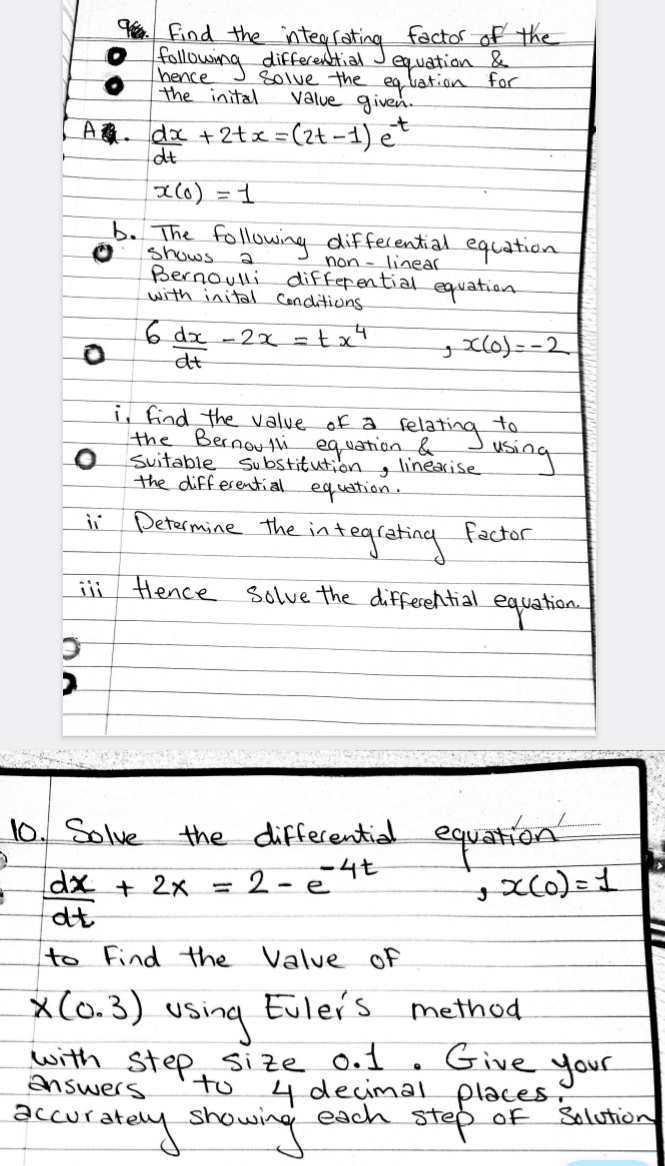 9a. Find the integrating factor of the
following differential equation &
hence solve the equation for
the inital value given.
A. dx/dt + 2tx = (2t-1) e^t
x(0) = 1
b. The following differential equation
shows a non-linear
Bernoulli differential equation
with inital conditions
6 dx/dt - 2x = t x^4 , x(0)=-2
i. find the value of a relating to
the Bernoulli equation & using
suitable substitution, linearise
the differential equation.
ii Determine the integrating factor
iii Hence solve the differential equation.
10. Solve the differential equation
dx/dt + 2x = 2 - e^-4t , x(0)=1
to find the value of
x(0.3) using Euler's method
with step size 0.1. Give your
answers to 4 decimal places.
accurately showing each step of solution